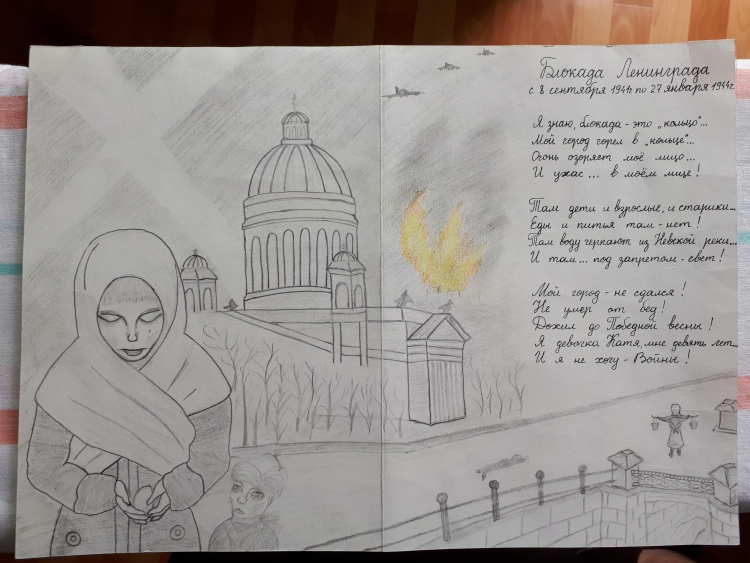 Блокада Ленинграда
с 8 сентября 1941г по 27 января 1944г.
Я знаю, блокада - это „кольцо"...
Мой город горел в „кольце"...
Огонь озоряет моё лицо...
И ужас... в моём лице!
Там дети и взрослые, и старики...
Еды и питья там - нет!
Там воду черпают из Невской реки...
И там... под запретом - свет!
Мой город - не сдался!
Не умер от бед!
Дожил до Победной весны!
Я девочка Катя, мне девять лет...
И я не хочу - Войны!